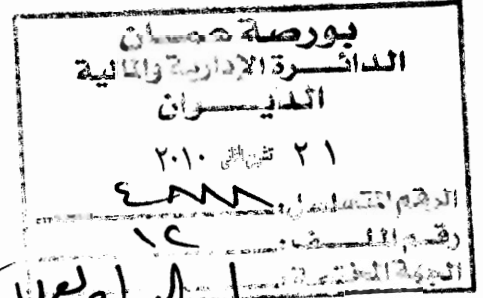 بورصة عمان
الدائرة الإدارية والمالية
الديوان
٢١ تشرين الثاني ٢٠١٠
الرقم المتسلسل: ٤٨٨٨
رقم الملف: ١٢
الجهة المختصة: